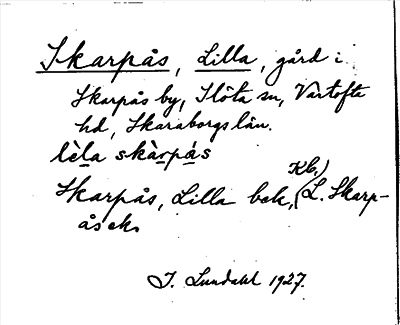 Skarpås, Lilla, gård i
Skarpås by, Slöta sn, Vartofta
hd, Skaraborgs län.
lèla skàrpás
Skarpås, Lilla bek, Kb, (L. Skarp-
ås ek.
J. Lundahl 1927.